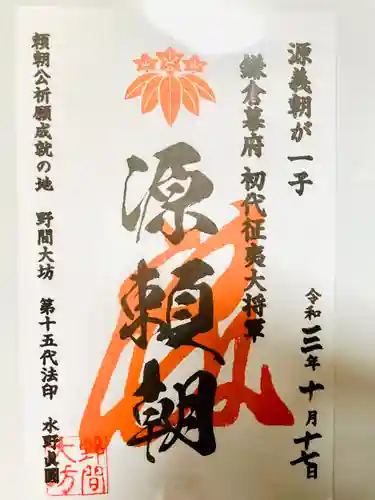 源義朝が一子
鎌倉幕府 初代征夷大将軍
源頼朝
令和三年十月十七日
頼朝公祈願成就の地 野間大坊 第十五代法印 水野真圓
野間
大坊